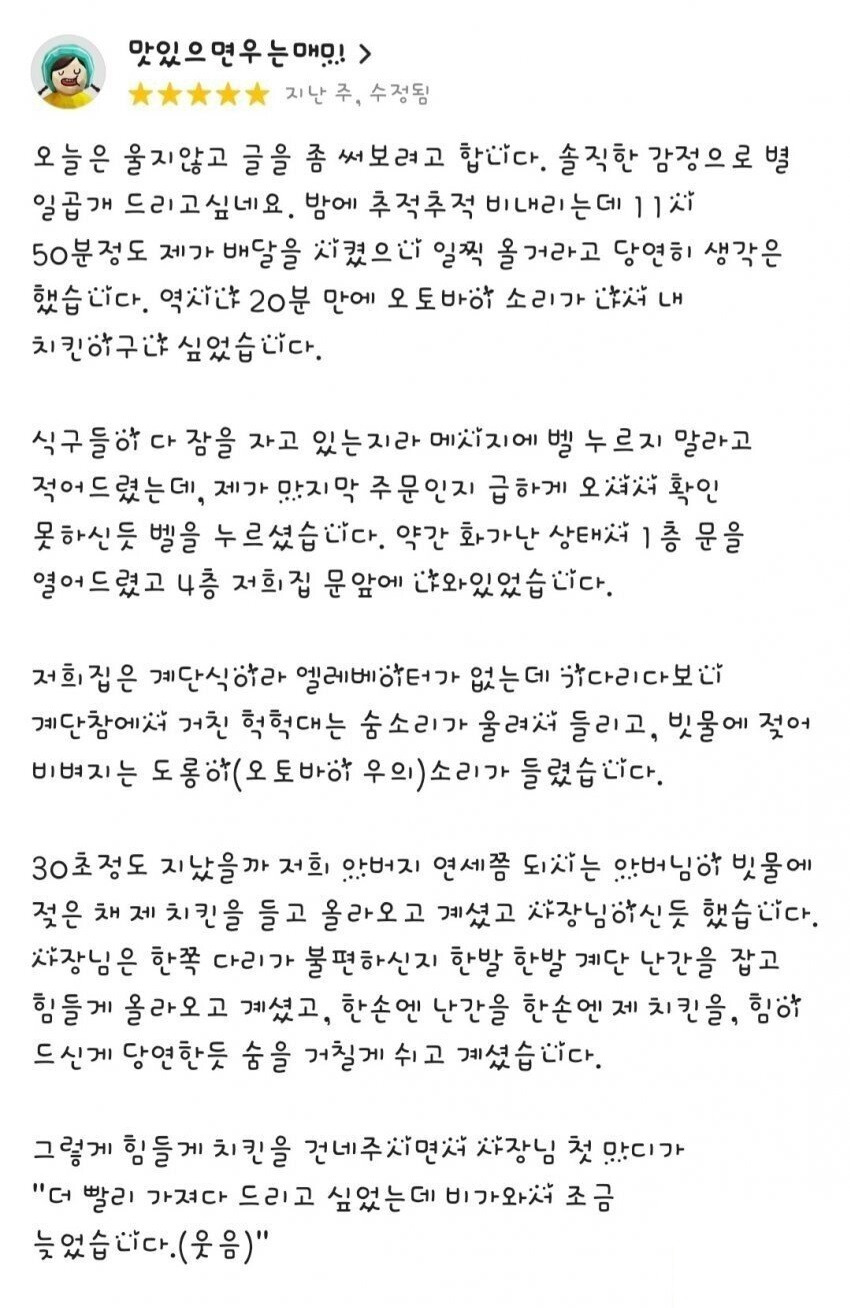 맛있으면우는매미 >
★★★★★ 지난 주, 수정됨
오늘은 울지않고 글을 좀 써보려고 합니다. 솔직한 감정으로 별
일곱개 드리고싶네요. 밤에 추적추적 비내리는데 11시
50분정도 제가 배달을 시켰으니 일찍 올거라고 당연히 생각은
했습니다. 역시나 20분 만에 오토바이 소리가 나서 내
치킨이구나 싶었습니다.
식구들이 다 잠을 자고 있는지라 메시지에 벨 누르지 말라고
적어드렸는데, 제가 마지막 주문인지 급하게 오셔서 확인
못하신듯 벨을 누르셨습니다. 약간 화가난 상태서 1층 문을
열어드렸고 4층 저희집 문앞에 나와있었습니다.
저희집은 계단식이라 엘레베이터가 없는데 기다리다보니
계단참에서 거친 헉헉대는 숨소리가 울려서 들리고, 빗물에 젖어
비벼지는 도롱이(오토바이 우의)소리가 들렸습니다.
30초정도 지났을까 저희 아버지 연세쯤 되시는 아버님이 빗물에
젖은 채 제 치킨을 들고 올라오고 계셨고 사장님이신듯 했습니다.
사장님은 한쪽 다리가 불편하신지 한발 한발 계단 난간을 잡고
힘들게 올라오고 계셨고, 한손엔 난간을 한손엔 제 치킨을, 힘이
드신게 당연한듯 숨을 거칠게 쉬고 계셨습니다.
그렇게 힘들게 치킨을 건네주시면서 사장님 첫 마디가
"더 빨리 가져다 드리고 싶었는데 비가와서 조금
늦었습니다.(웃음)"